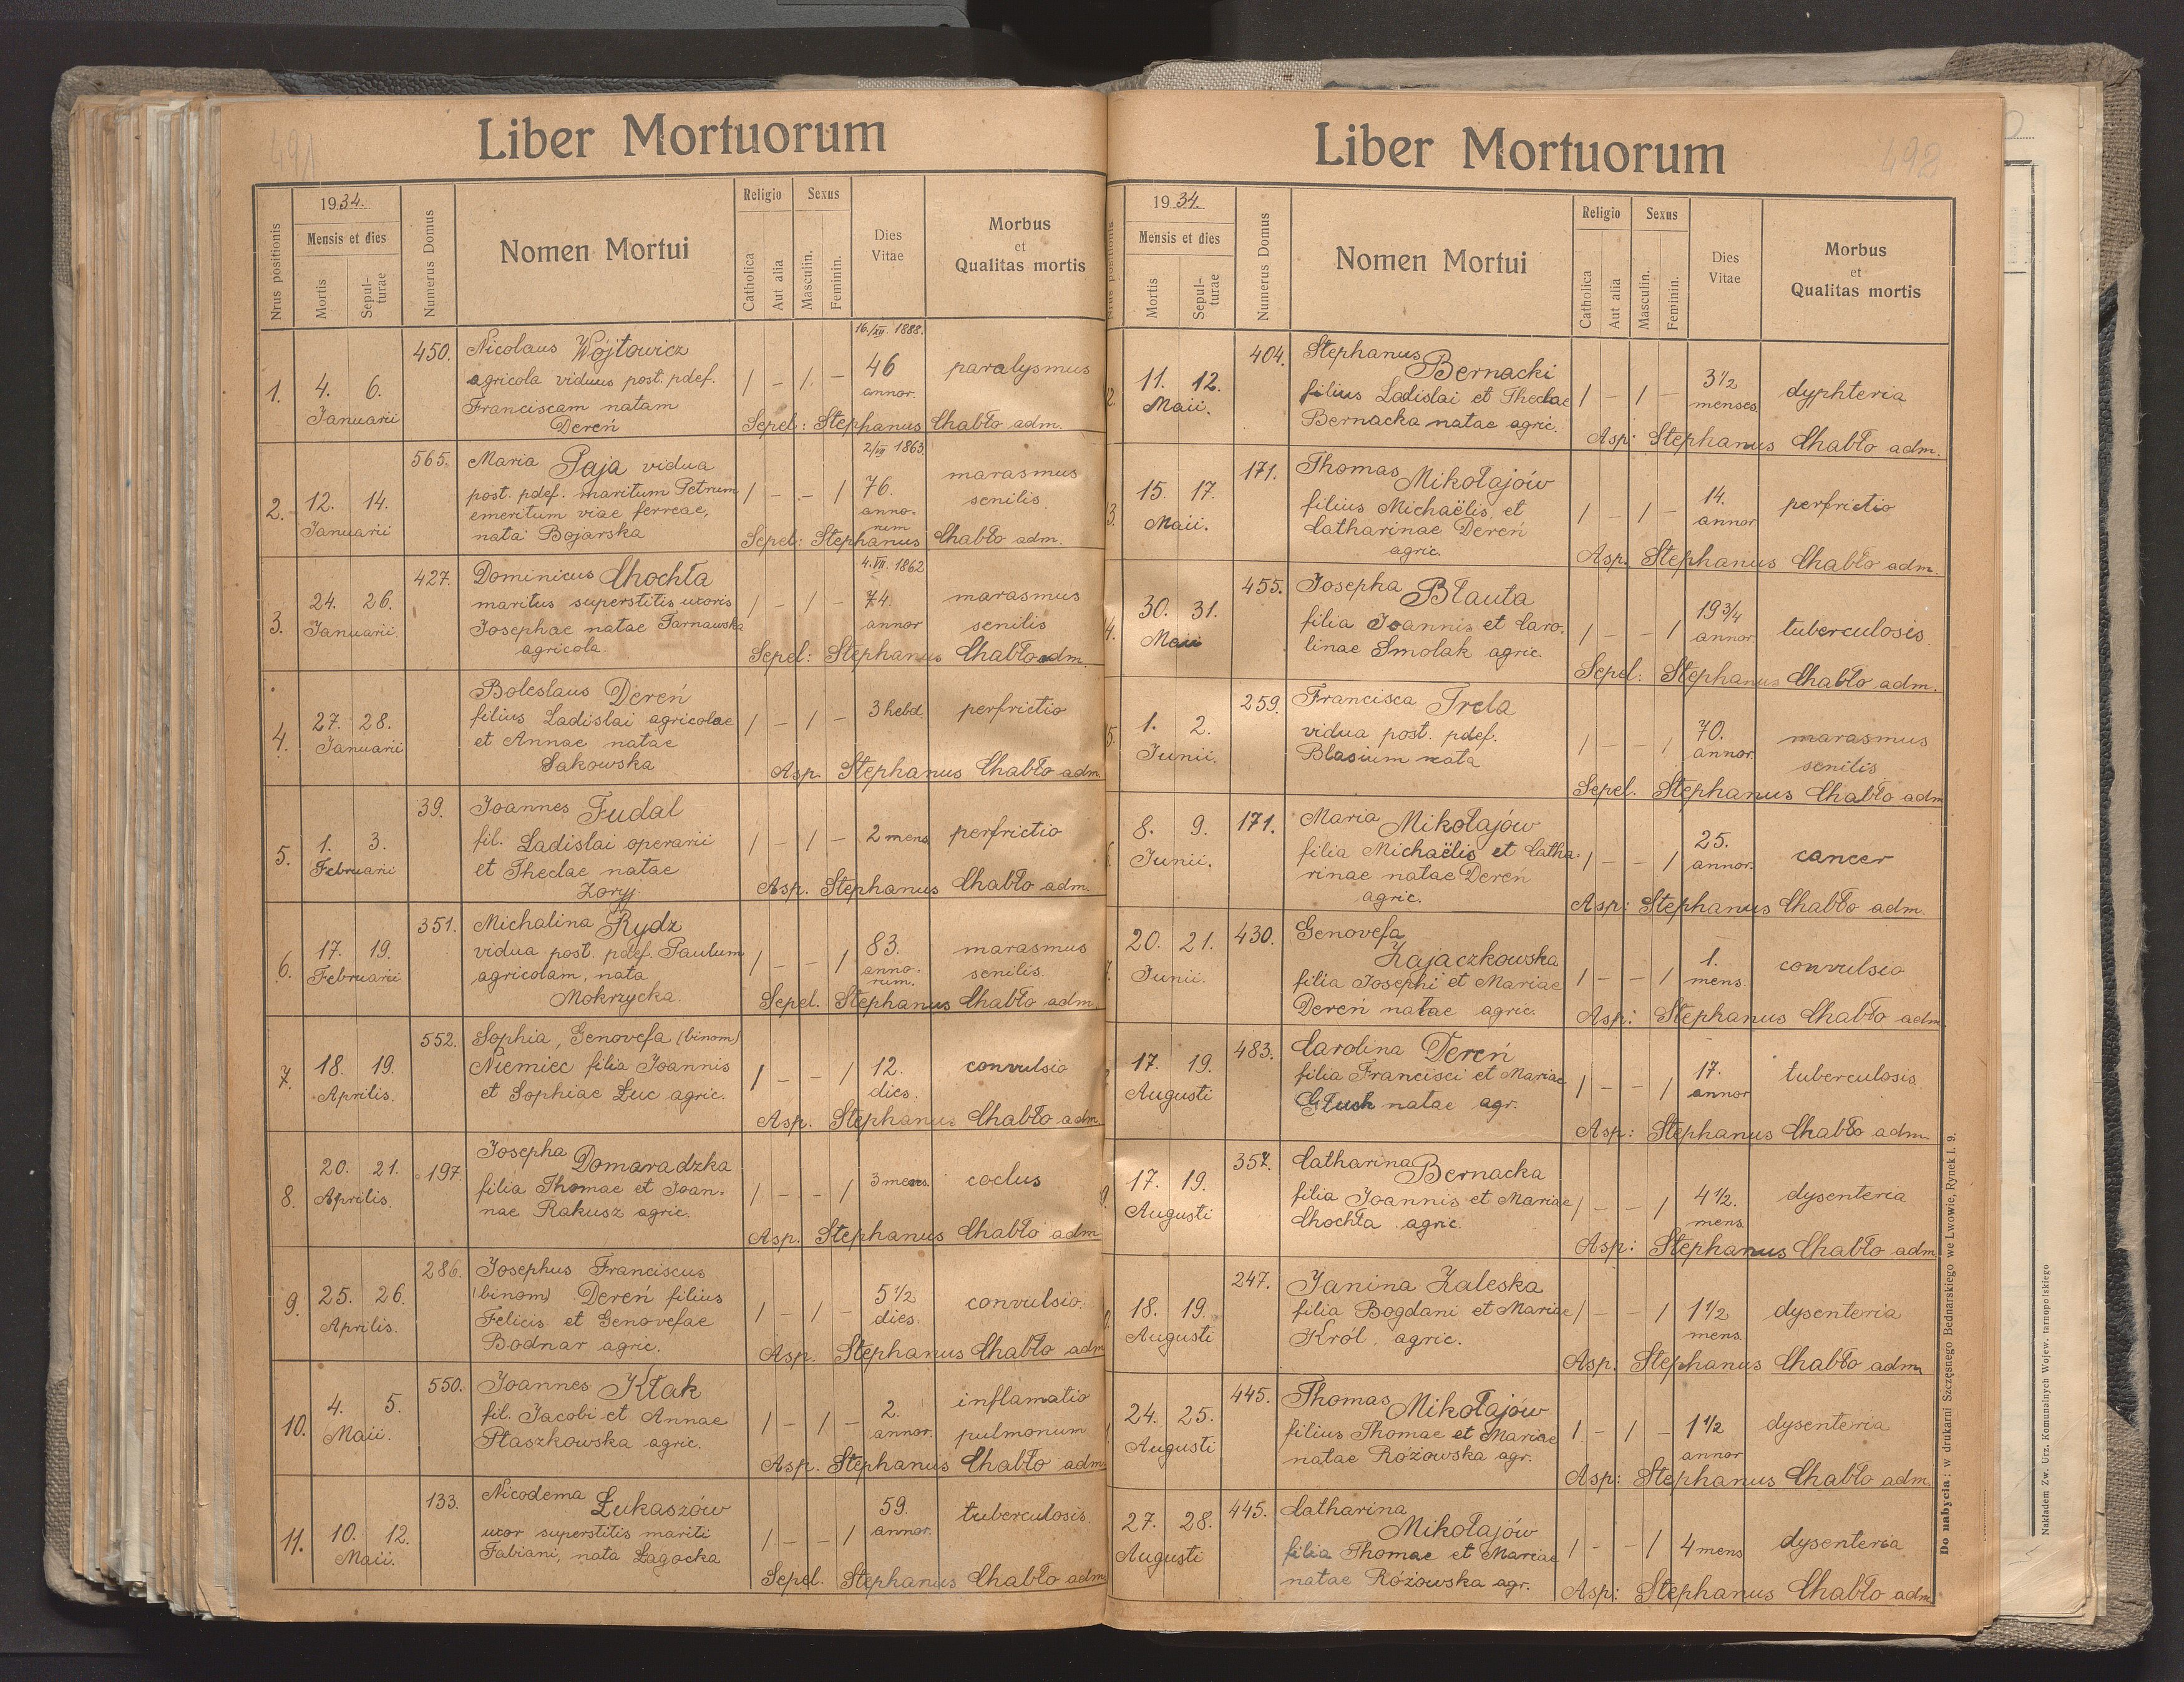 491
Liber Mortuorum
Nrus positionis
1934.
Mensis et dies
Mortis
Sepul-
turae
Numerus Domus
Nomen Mortui
Religio
Catholica
Aut alia
Sexus
Masculin.
Feminin.
Dies
Vitae
Morbus
et
Qualitas mortis
1. 4. 6.
Januarii
450. Nicolaus Wójtowicz
agricola viduus post. pdef.
Franciscam natam
Dereń
1 - 1. -
16/XII 1888.
46
annor.
paralysmus
Sepel: Stephanus Chabło adm.
2. 12. 14.
Januarii
565. Maria Paja vidua
post. pdef. maritum Petrum
emeritum viae ferreae,
nata Bojarska
1 - - 1
2/VII 1863
76.
anno-
rum
marasmus
senilis
Sepel: Stephanus Chabło adm.
3. 24. 26.
Januarii.
427. Dominicus Chochła
maritus superstitis uxoris
Josephae natae Tarnawska
agricola.
1 - 1 -
4.VII. 1862
74.
annor
marasmus
senilis
Sepel: Stephanus Chabło adm.
4. 27. 28.
Januarii
Boleslaus Dereń
filius Ladislai agricolae
et Annae natae
Sakowska
1 - 1 -
3 hebd.
perfrictio
Asp. Stephanus Chabło adm.
5. 1. 3.
Februarii
39. Joannes Fudal
fil. Ladislai operarii
et Theclae natae
Zoryj.
1 - 1 -
2 mens
perfrictio
Asp. Stephanus Chabło adm.
6. 17. 19.
Februarii
351. Michalina Rydz
vidua post. pdef. Paulum
agricolam, nata
Mokrzycka.
1 - - 1
83.
anno-
rum.
marasmus
senilis.
Sepel. Stephanus Chabło adm.
7. 18. 19.
Aprilis.
552. Sophia, Genovefa (binom)
Niemiec filia Joannis
et Sophiae Łuc agric.
1 - - 1
12.
dies.
convulsio
Asp. Stephanus Chabło adm.
8. 20. 21.
Aprilis
197. Josepha Domaradzka
filia Thomae et Joan-
nae Rakusz agric.
1 - - 1
3 mens.
coclus
Asp. Stephanus Chabło adm
9. 25. 26.
Aprilis.
286. Josephus Franciscus
(binom) Dereń filius
Felicis et Genovefae
Bodnar agric.
1 - 1 -
5 1/2
dies.
convulsio.
Asp. Stephanus Chabło adm
10. 4. 5.
Maii.
550. Joannes Kłak
fil. Jacobi et Annae
Ptaszkowska agric.
1 - 1 -
2.
annor.
inflamatio
pulmonum
Asp. Stephanus Chabło adm.
11. 10. 12.
Maii.
133. Nicodema Łukaszów
uxor superstitis mariti
Fabiani, nata Łagocka
1 - - 1
59.
annor.
tuberculosis.
Sepel. Stephanus Chabło adm.
498
Liber Mortuorum
Nrus positionis
1934.
Mensis et dies
Mortis
Sepul-
turae
Numerus Domus
Nomen Mortui
Religio
Catholica
Aut alia
Sexus
Masculin.
Feminin.
Dies
Vitae
Morbus
et
Qualitas mortis
2. 11. 12.
Maii.
404. Stephanus
Bernacki
filius Ladislai et Theclae
Bernacka natae agric.
1 - 1 -
3 1/2
menses.
dyphteria
Asp: Stephanus Chabło adm.
3. 15. 17.
Maii.
171. Thomas Mikołajów
filius Michaëlis et
Catharinae Dereń
agric.
1 - 1 -
14.
annor
perfrictio
Asp. Stephanus Chabło adm.
4. 30. 31.
Maii
455. Josepha Błauta
filia Joannis et Caro-
linae Smolak agric.
1 - - 1
19 3/4
annor.
tuberculosis
Sepel: Stephanus Chabło adm.
5. 1. 2.
Junii.
259. Francisca Trela
vidua post. pdef.
Blasium nata
1 - - 1
70.
annor.
marasmus
senilis
Sepel. Stephanus Chabło adm
8. 9.
Junii.
171. Maria Mikołajów
filia Michaëlis et Catha-
rinae natae Dereń
agric.
1 - - 1
25.
annor.
cancer
Asp: Stephanus Chabło adm.
20. 21.
Junii.
430. Genovefa
Zajaczkowska
filia Josephi et Mariae
Dereń natae agric.
1 - - 1
1.
mens.
convulsio
Asp: Stephanus Chabło adm.
17. 19.
Augusti
483. Carolina Dereń
filia Francisci et Mariae
Głuch natae agr.
1 - - 1
17.
annor
tuberculosis.
Asp: Stephanus Chabło adm.
9 17. 19.
Augusti
357. Catharina Bernacka
filia Joannis et Mariae
Chochła agric.
1 - - 1
4 1/2.
mens.
dysenteria
Asp: Stephanus Chabło adm
18. 19.
Augusti
247. Janina Zaleska
filia Bogdani et Mariae
Król agric.
1 - - 1
1 1/2
mens.
dysenteria
Asp. Stephanus Chabło adm
24. 25.
Augusti
445. Thomas Mikołajów
filius Thomae et Mariae
natae Różowska agr.
1 - 1 -
1 1/2
annor
dysenteria
Asp: Stephanus Chabło adm.
27. 28.
Augusti
445. Catharina
Mikołajów
filia Thomae et Mariae
natae Różowska agr.
1 - - 1
4 mens
dysenteria
Asp: Stephanus Chabło adm.
Do nabycia: w drukarni Szczęsnego Bednarskiego we Lwowie, Rynek l. 9.
Nakładem Zw. Urz. Komunalnych Wojew. tarnopolskiego